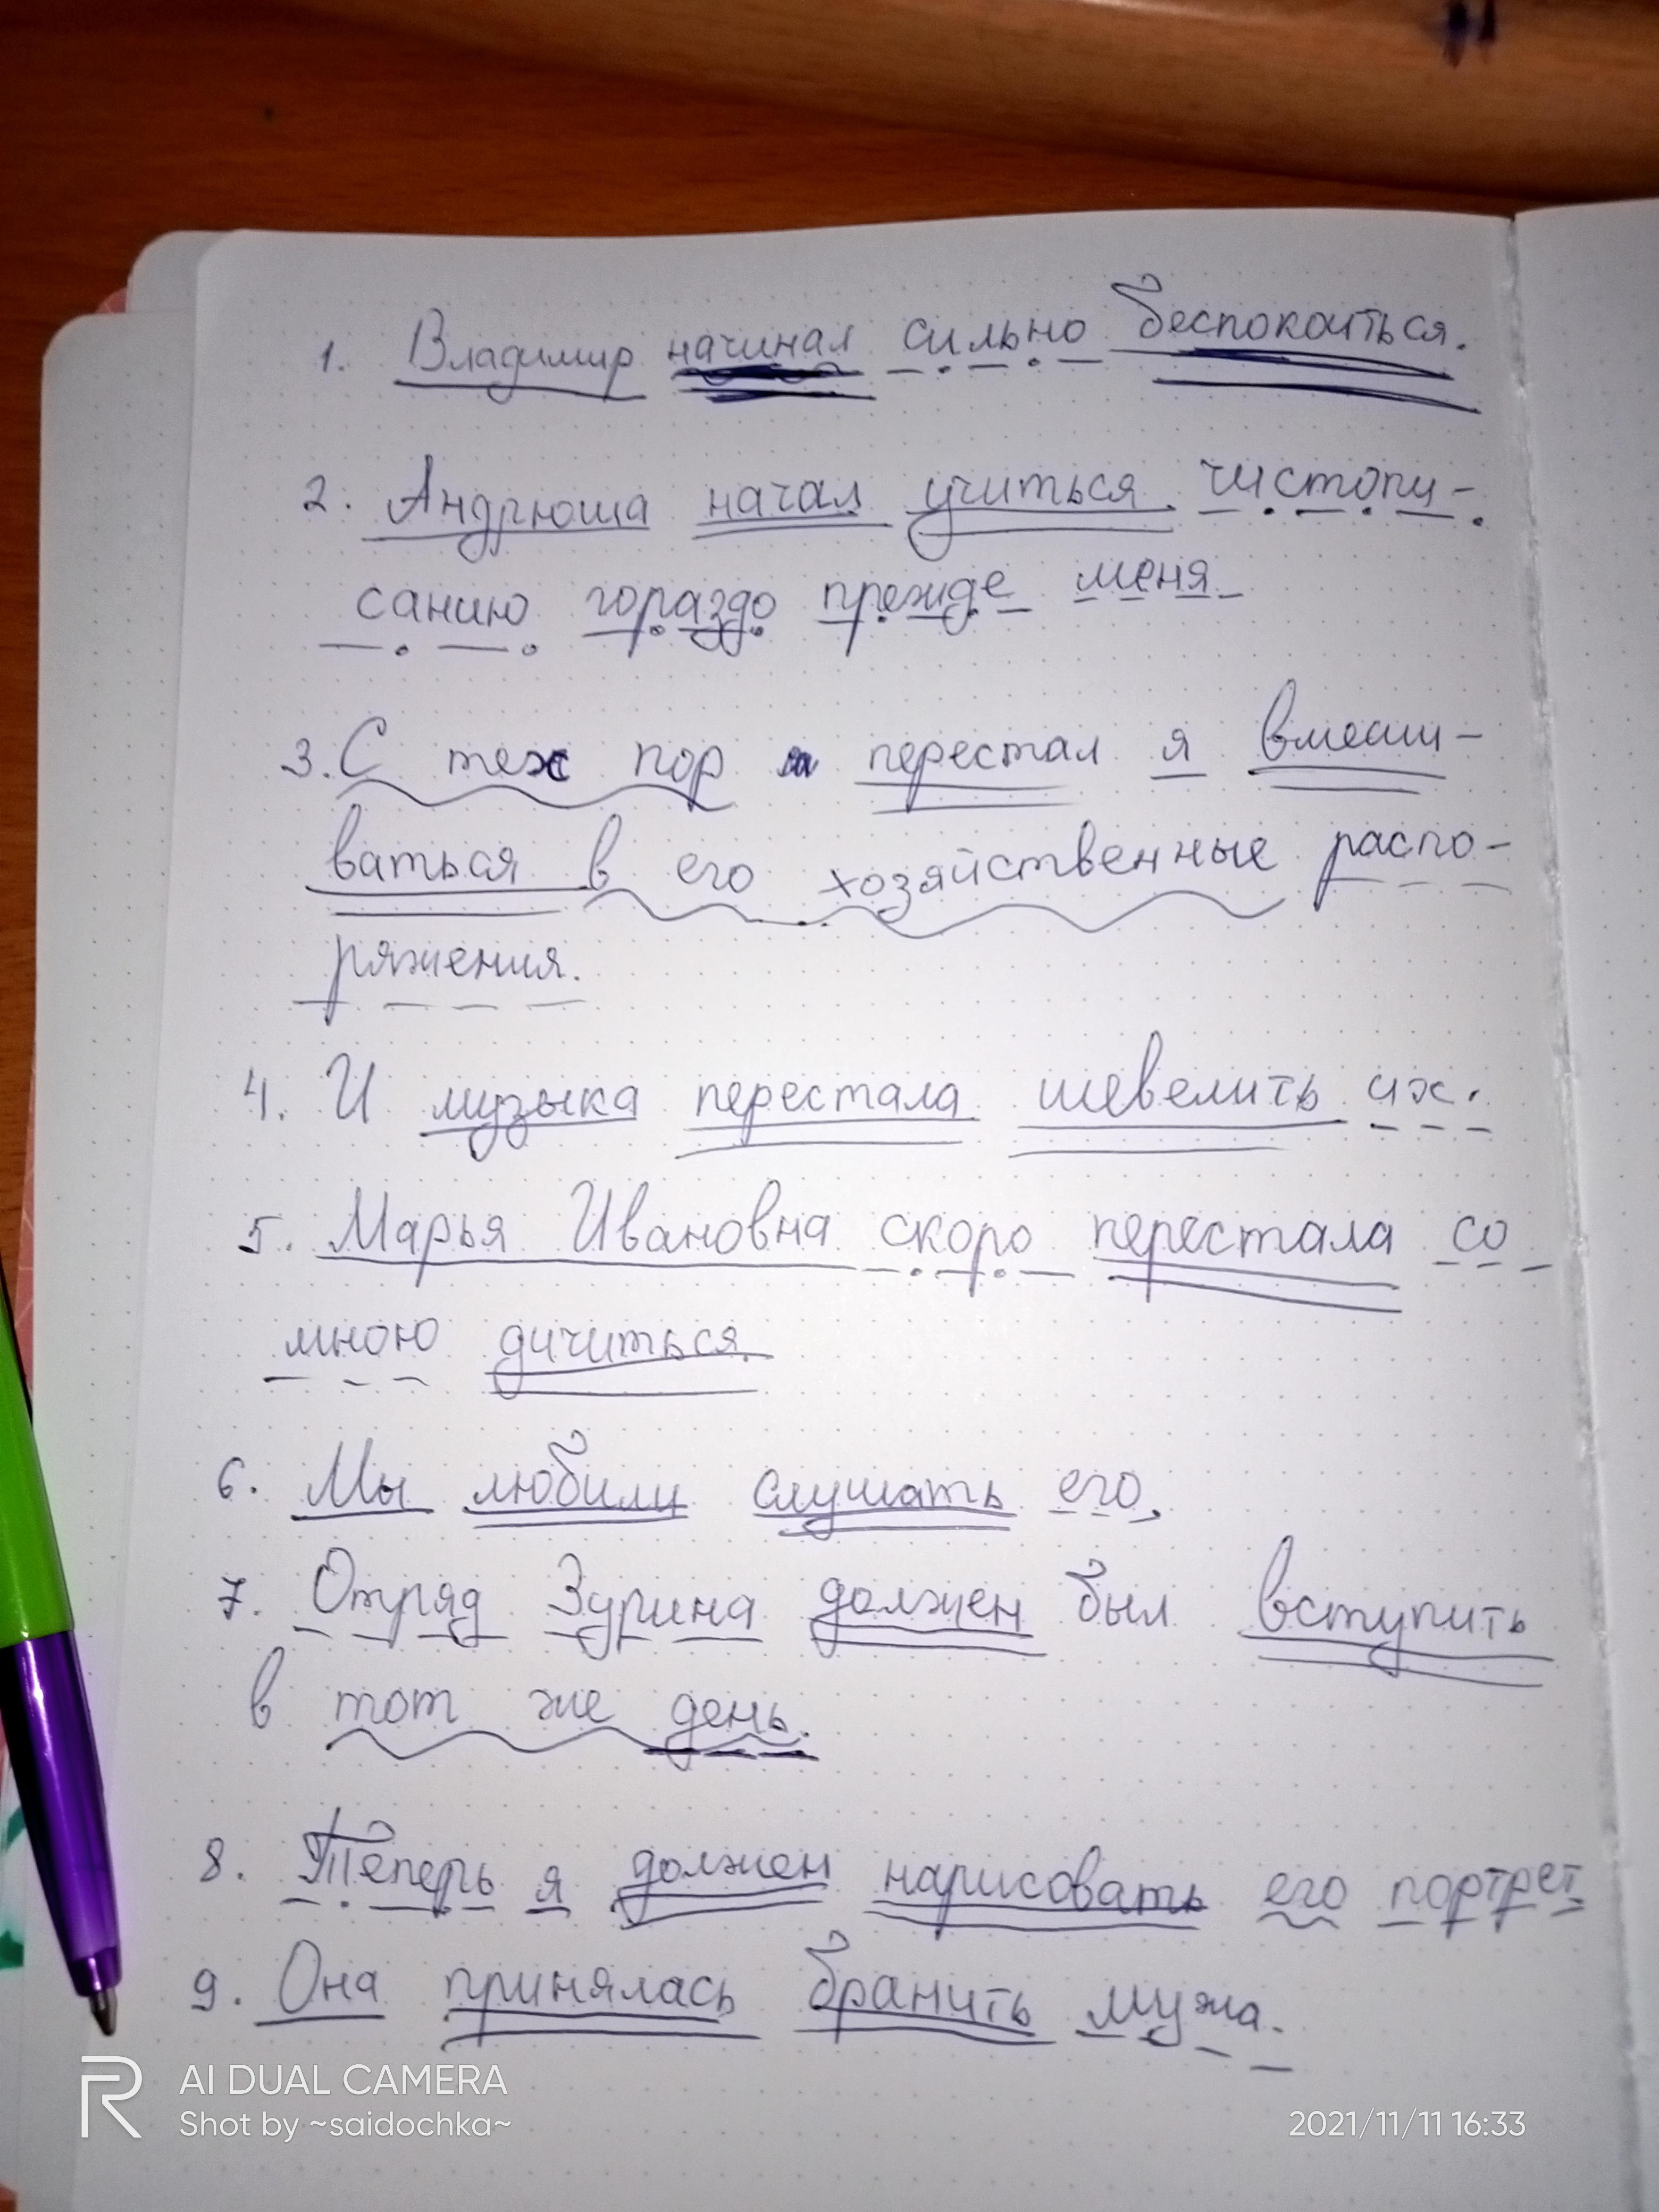 1. Владимир начинал сильно беспокоиться.
2. Андрюша начал учиться чистопи-
санию гораздо прежде меня.
3. С тех пор перестал я вмеши-
ваться в его хозяйственные распо-
ряжения.
4. И музыка перестала шевелить их.
5. Марья Ивановна скоро перестала со
мною дичиться.
6. Мы любили слушать его.
7. Отряд Зурина должен был вступить
в тот же день.
8. Теперь я должен нарисовать его портрет
9. Она принялась бранить мужа.
AI DUAL CAMERA
Shot by ~saidochka~
2021/11/11 16:33